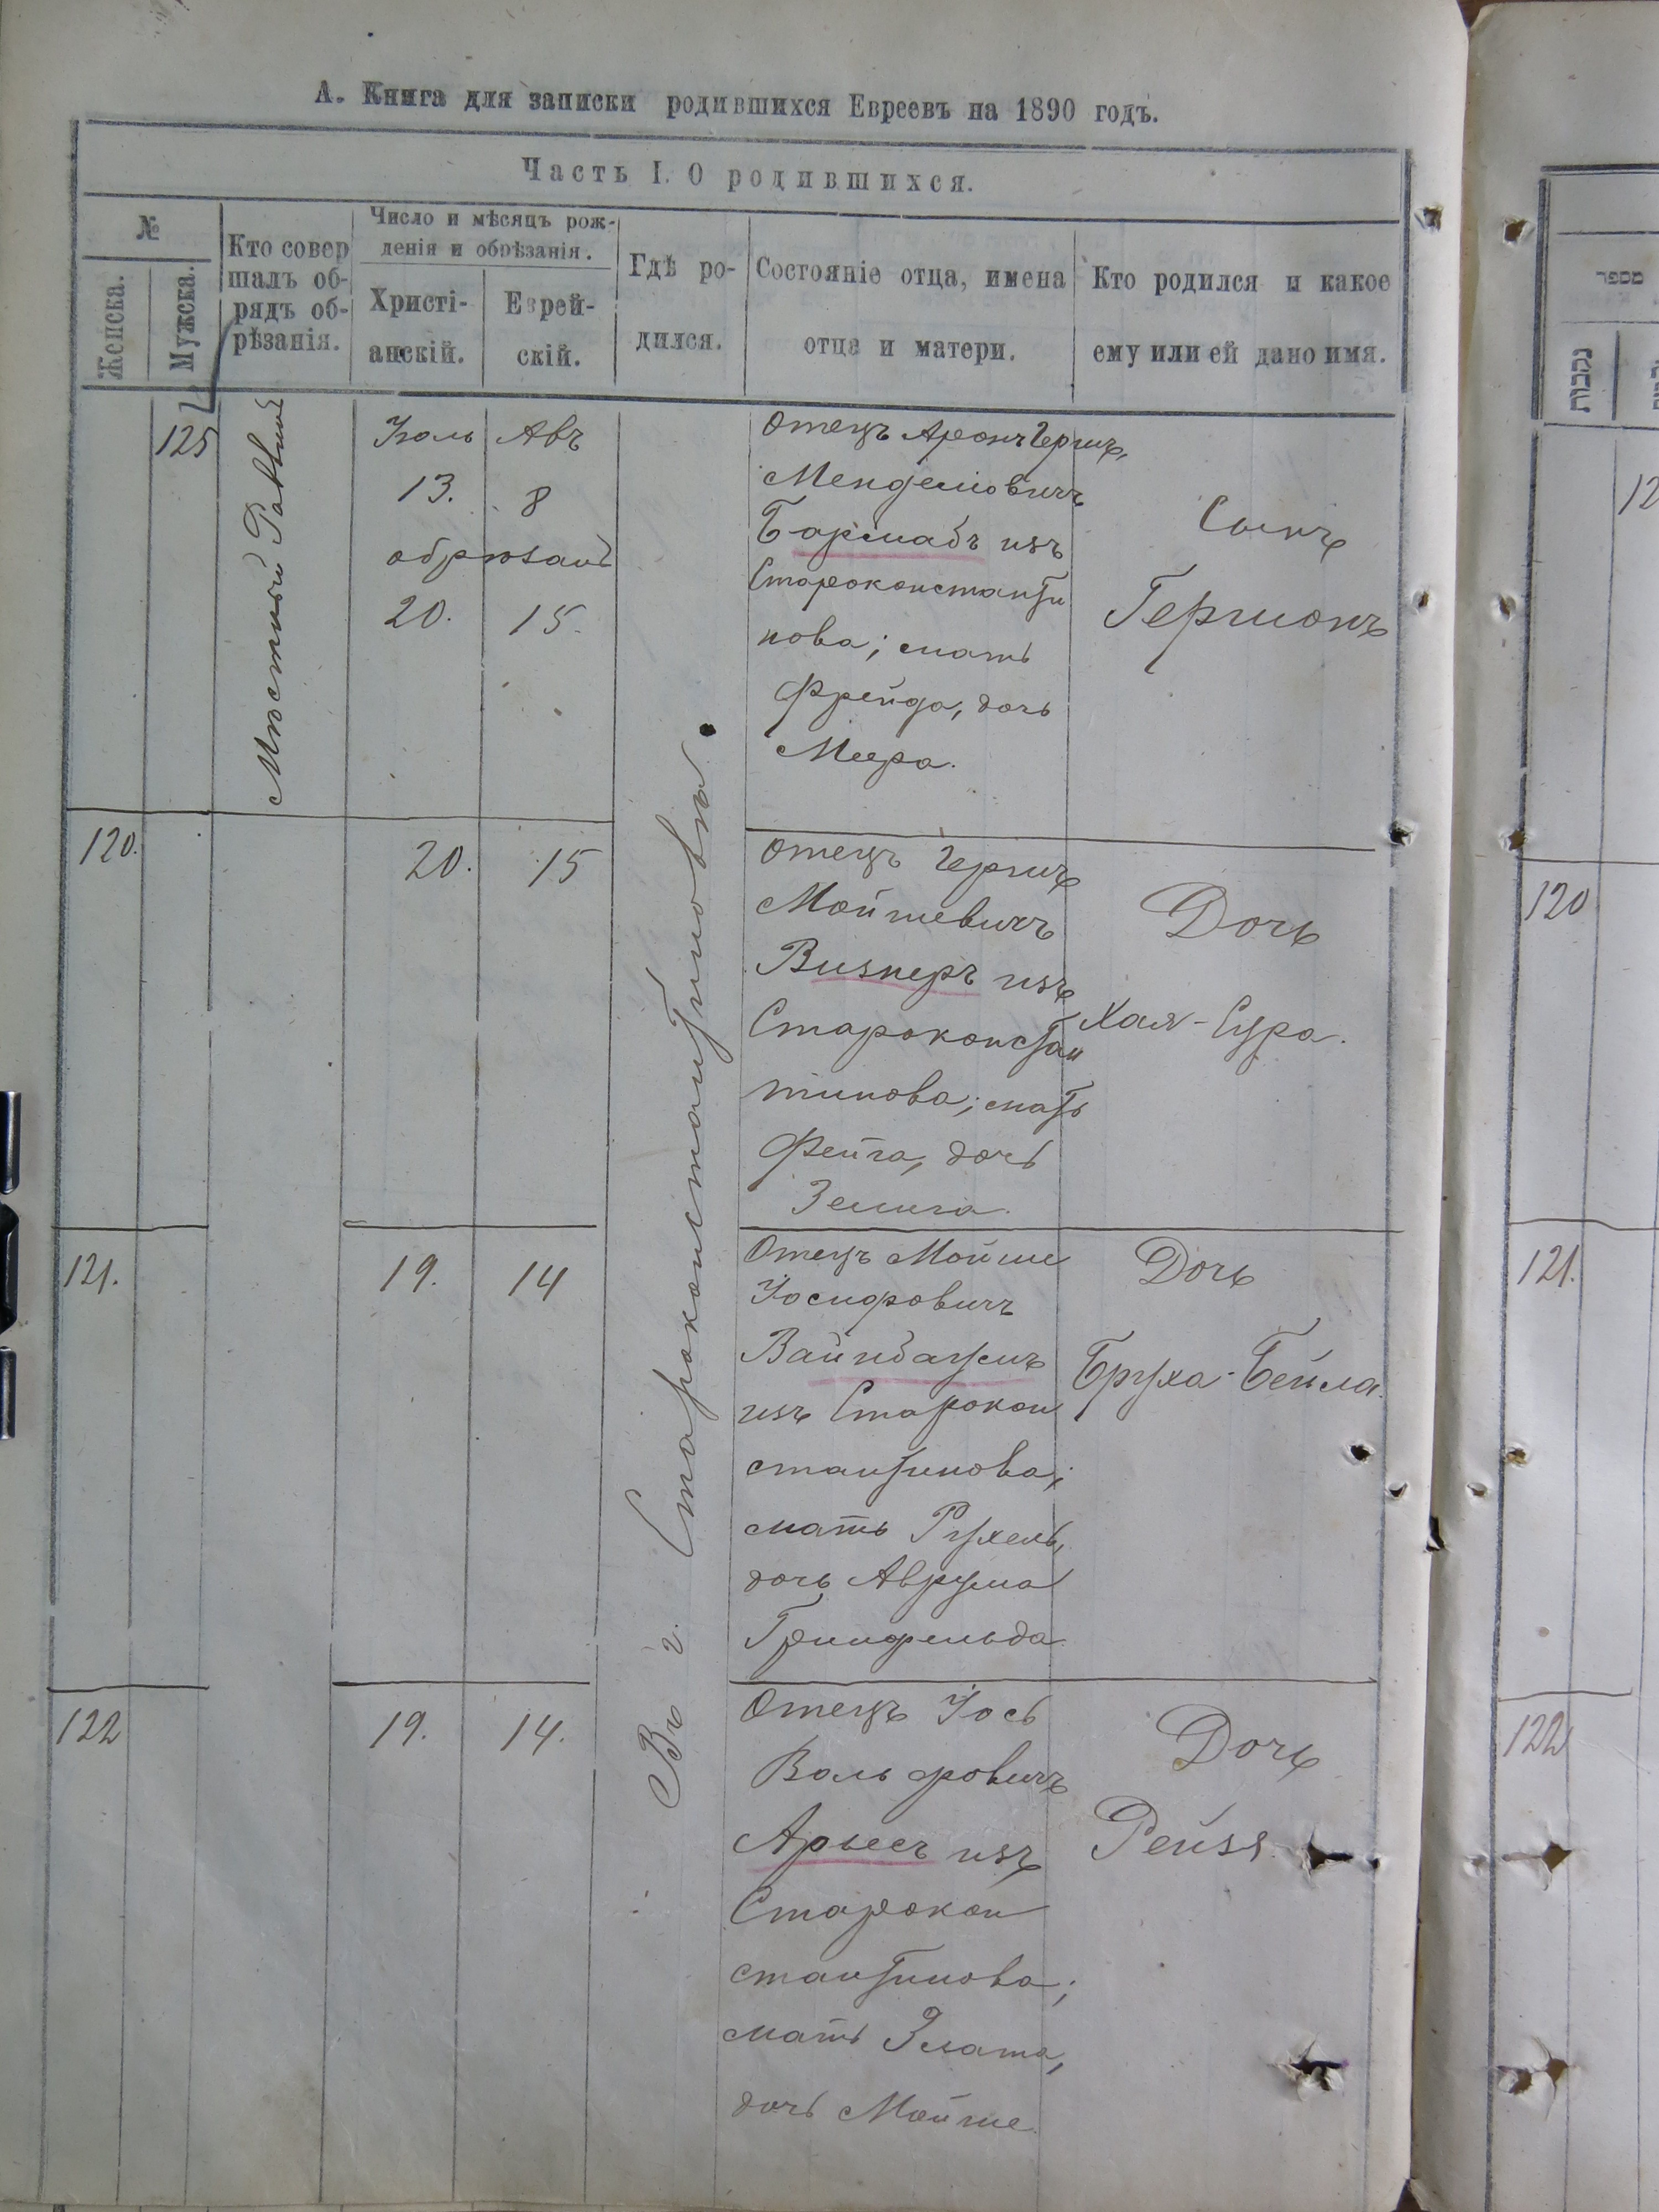 А. Книга для записки родившихся Евреевъ на 1890 годъ.
Часть I. О родившихся.
№
Женска.
Мужска.
Кто совер
шалъ об-
рядъ об-
рѣзанія.
Число и мѣсяцъ рож-
денія и обрѣзанія.
Христі-
анскій.
Еврей-
скій.
Гдѣ ро-
дился.
Состояніе отца, имена
отца и матери.
Кто родился и какое
ему или ей дано имя.
125
Мѣстный Раввинъ
Іюль Авъ
13. 8
обрѣзанъ
20. 15.
Въ г. Староконстантиновѣ.
Отецъ Аронъ Гершъ
Менделіовичъ
Бармабъ изъ
Староконстанти
нова; мать
Фрейда, дочь
Меера.
Сынъ
Гершонъ
120.
20. 15
Отецъ Гершъ
Мойшевичъ
Визнеръ изъ
Староконстан
тинова; мать
Фейга, дочь
Зелига.
Дочь
Хая-Сура.
121.
19. 14
Отецъ Мойше
Іосифовичъ
Вайнбаумъ
изъ Старокон
стантинова;
мать Рухель,
дочь Аврума
Гринфельда
Дочь
Бруха-Бейла.
122
19. 14.
Отецъ Іось
Вольфовичъ
Арыесъ изъ
Старокон
стантинова;
мать Злата,
дочь Мойше
Дочь
Рейзя.
מספר
נקבות
12
120
121.
122